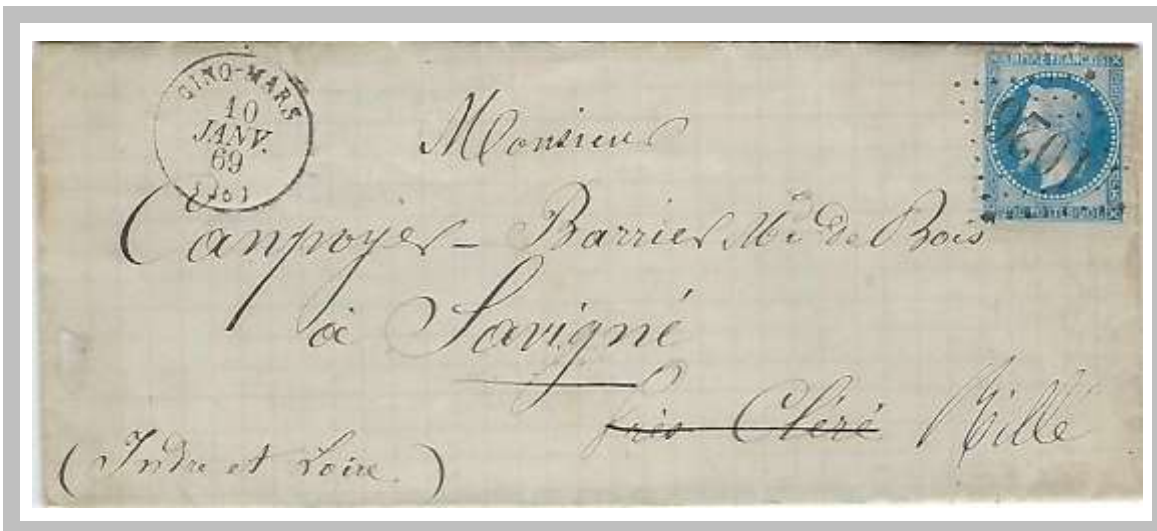 CINQ-MARS
10
JANV.
69
EMPIRE FRANÇAIS
1020
Monsieur
Canpoyer - Barrier Md. de Bois
à Savigné
près Cléré Rillé
(Indre et Loire.)